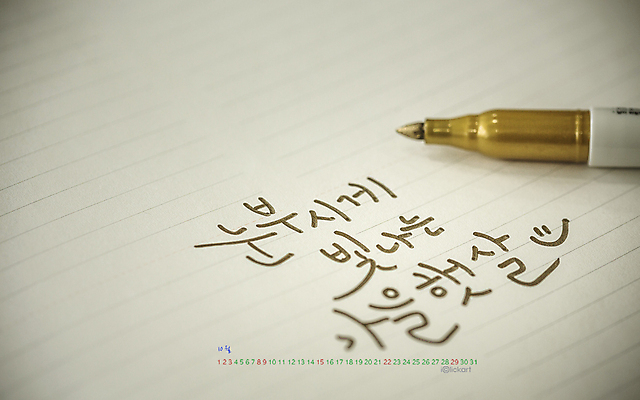 눈부시게
빛나는
가을햇살
10월
1 2 3 4 5 6 7 8 9 10 11 12 13 14 15 16 17 18 19 20 21 22 23 24 25 26 27 28 29 30 31
iclickart